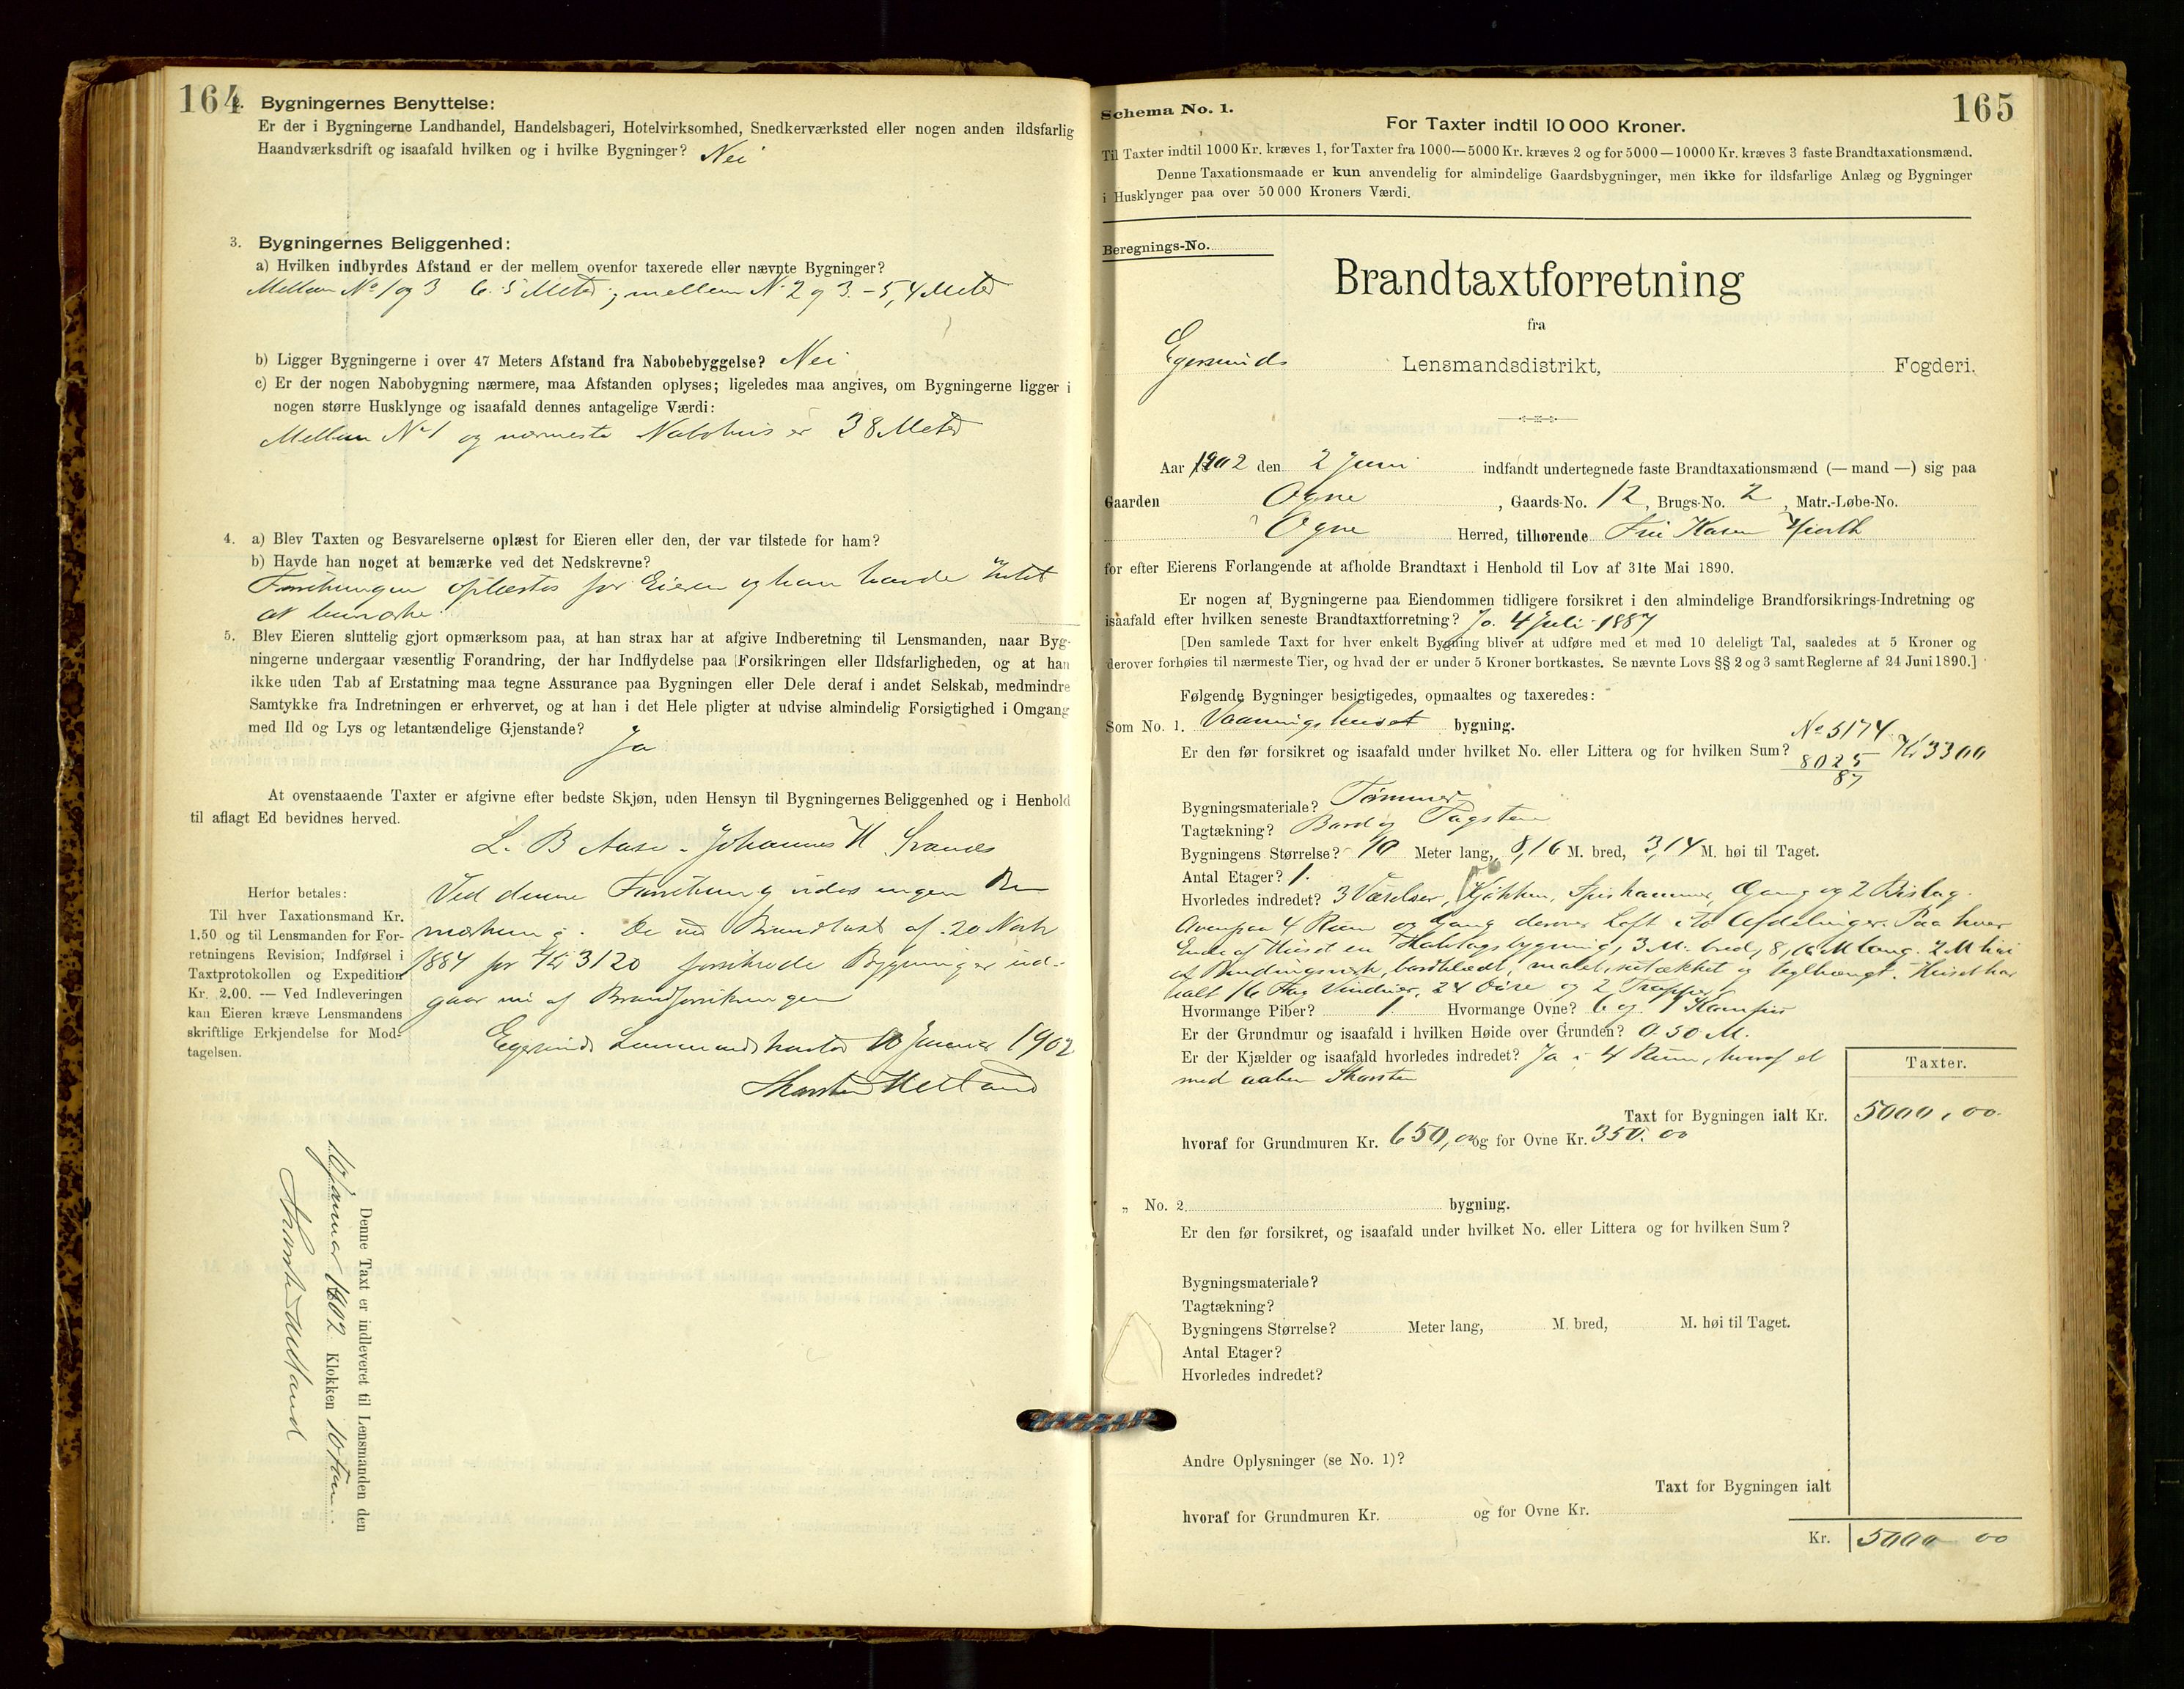 164
2. Bygningernes Benyttelse:
Er der i Bygningerne Landhandel, Handelsbageri, Hotelvirksomhed, Snedkerværksted eller nogen anden ildsfarlig
Haandværksdrift og isaafald hvilken og i hvilke Bygninger? Nei
3. Bygningernes Beliggenhed:
a) Hvilken indbyrdes Afstand er der mellem ovenfor taxerede eller nævnte Bygninger?
Mellem No 1 og 3 6.5 Meter; mellem N. 2 og 3. - 5,4 Meter
b) Ligger Bygningerne i over 47 Meters Afstand fra Nabobebyggelse? Nei
c) Er der nogen Nabobygning nærmere, maa Afstanden oplyses; ligeledes maa angives, om Bygningerne ligger i
nogen større Husklynge og isaafald dennes antagelige Værdi:
Mellem No 1 og nærmeste Nabohus er 38 Meter
4. a) Blev Taxten og Besvarelserne oplæst for Eieren eller den, der var tilstede for ham?
b) Havde han noget at bemærke ved det Nedskrevne?
Forretningen oplæstes for Eieren og han havde Intet
at bemærke.
5. Blev Eieren sluttelig gjort opmærksom paa, at han strax har at afgive Indberetning til Lensmanden, naar Byg-
ningerne undergaar væsentlig Forandring, der har Indflydelse paa Forsikringen eller Ildsfarligheden, og at han
ikke uden Tab af Erstatning maa tegne Assurance paa Bygningen eller Dele deraf i andet Selskab, medmindre
Samtykke fra Indretningen er erhvervet, og at han i det Hele pligter at udvise almindelig Forsigtighed i Omgang
med Ild og Lys og letantændelige Gjenstande?
Ja
At ovenstaaende Taxter er afgivne efter bedste Skjøn, uden Hensyn til Bygningernes Beliggenhed og i Henhold
til aflagt Ed bevidnes herved.
L. B Aase. Johannes H
Herfor betales:
Til hver Taxationsmand Kr.
1.50 og til Lensmanden for For-
retningens Revision, Indførsel i
Taxtprotokollen og Expedition
Kr. 2.00. — Ved Indleveringen
kan Eieren kræve Lensmandens
skriftlige Erkjendelse for Mod-
tagelsen.
Ved denne Forretning vides ingen Be-
mærkning. De ved Brandtaxt af 20 Novb
1884 for Kr 3120 forsikrede Bygninger ud-
gaar nu af Brandforsikringen
Egersunds Lensmandskontor 10 Januar 1902
Denne Taxt er indleveret til Lensmanden den
10 Januar 1902 Klokken 10 Form.
165
Schema No. 1.
For Taxter indtil 10 000 Kroner.
Til Taxter indtil 1000 Kr. kræves 1, for Taxter fra 1000—5000 Kr. kræves 2 og for 5000—10000 Kr. kræves 3 faste Brandtaxationsmænd.
Denne Taxationsmaade er kun anvendelig for almindelige Gaardsbygninger, men ikke for ildsfarlige Anlæg og Bygninger
i Husklynger paa over 50 000 Kroners Værdi.
Beregnings-No.
Brandtaxtforretning
fra
Egersunds Lensmandsdistrikt, Fogderi.
Aar 1902 den 2 Juni indfandt undertegnede faste Brandtaxationsmænd (— mand —) sig paa
Gaarden Ogne, Gaards-No. 12, Brugs-No. 2, Matr.-Løbe-No.
Ogne Herred, tilhørende Karen Hjorth
for efter Eierens Forlangende at afholde Brandtaxt i Henhold til Lov af 31te Mai 1890.
Er nogen af Bygningerne paa Eiendommen tidligere forsikret i den almindelige Brandforsikrings-Indretning og
isaafald efter hvilken seneste Brandtaxtforretning? Ja. 4 Juli 1887
[Den samlede Taxt for hver enkelt Bygning bliver at udføre med et med 10 deleligt Tal, saaledes at 5 Kroner og
derover forhøies til nærmeste Tier, og hvad der er under 5 Kroner bortkastes. Se nævnte Lovs §§ 2 og 3 samt Reglerne af 24 Juni 1890.]
Følgende Bygninger besigtigedes, opmaaltes og taxeredes:
Som No. 1. Vaaningshuset bygning.
No 5174
Er den før forsikret og isaafald under hvilket No. eller Littera og for hvilken Sum? 8025 Kr 3300
87
Bygningsmateriale? Tømmer
Tagtækning? Bord og Tagsten
Bygningens Størrelse? 10 Meter lang, 8,16 M. bred, 3,14 M. høi til Taget.
Antal Etager? 1.
Hvorledes indredet? 3 Værelser, Kjøkken, Spiskammer, Gang og 2 Bislag.
Ovenpaa 4 Rum og Gang derover Loft i to Afdelinger. Paa hver
Ende af Huset en Halvtagsbygning, 3 M. bred, 8,16 M lang. 2 M høi
af Bindingsverk, bordklædt, malet, og teglhængt. Huset har
ialt 16 Fag Vinduer, 24 Døre og 2 Trapper
Hvormange Piber? 1. Hvormange Ovne? 6 og 1 Komfur
Er der Grundmur og isaafald i hvilken Høide over Grunden? 0.50 M.
Er der Kjælder og isaafald hvorledes indredet? Ja i 4 Rum, hvoraf et
med aaben Skorsten
Taxter.
Taxt for Bygningen ialt Kr. 5000,00.
hvoraf for Grundmuren Kr. 650,00 og for Ovne Kr. 350.00
„ No. 2 bygning.
Er den før forsikret, og isaafald under hvilket No. eller Littera og for hvilken Sum?
Bygningsmateriale?
Tagtækning?
Bygningens Størrelse? Meter lang, M. bred, M. høi til Taget.
Antal Etager?
Hvorledes indredet?
Andre Oplysninger (se No. 1)?
Taxt for Bygningen ialt
hvoraf for Grundmuren Kr. og for Ovne Kr.
Kr. 5000 00